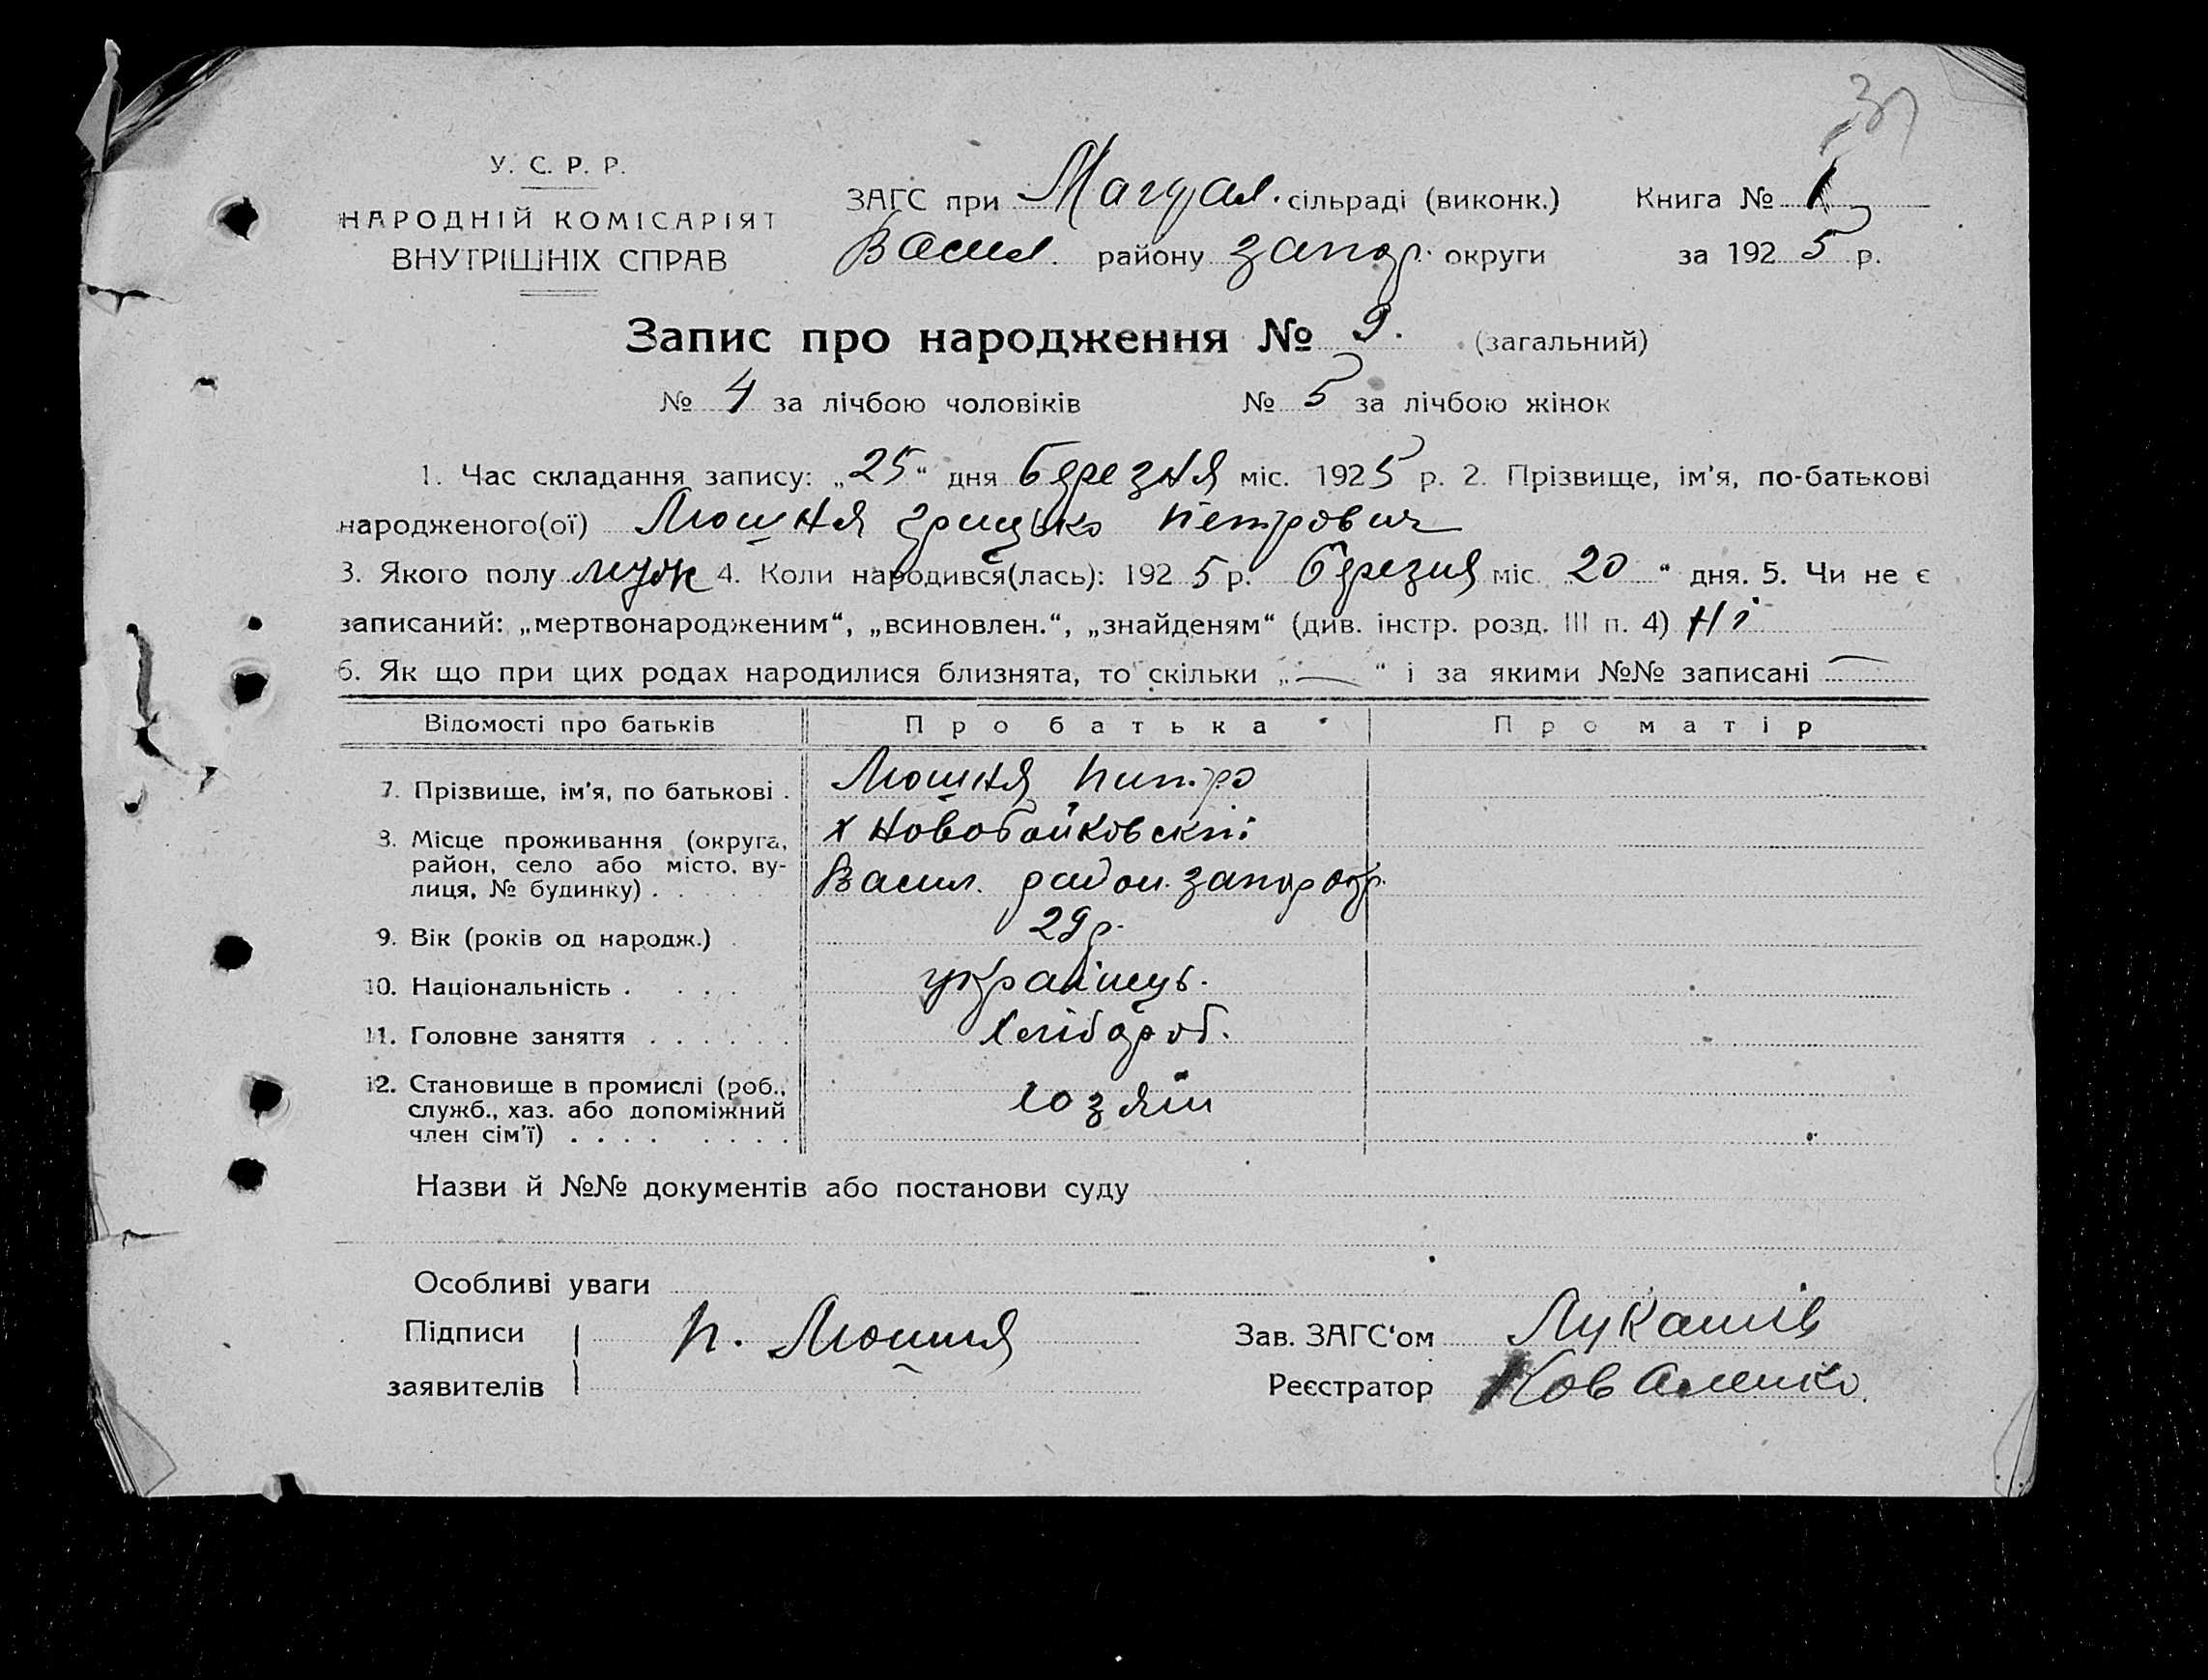 37
У. С. Р. Р.
НАРОДНІЙ КОМІСАРІЯТ
ВНУТРІШНІХ СПРАВ
ЗАГС при Магдал. сільраді (виконк.) Книга № 1
Васил. району Запор. округи за 1925 р.
Запис про народження № 9. (загальний)
№ 4 за лічбою чоловіків № 5 за лічбою жінок
1. Час складання запису: „25“ дня березня міс. 1925 р. 2. Прізвище, ім'я, по-батькові
народженого(ої) Люшня Грицько Петрович
3. Якого полу муж 4. Коли народився(лась): 1925 р. березня міс. 20 “ дня. 5. Чи не є
записаний: „мертвонародженим“, „всиновлен.“, „знайденям“ (див. інстр. розд. III п. 4) Ні
6. Як що при цих родах народилися близнята, то скільки „ — “ і за якими №№ записані —
Відомості про батьків Про батька Про матір
7. Прізвище, ім'я, по батькові . Люшня Питро
8. Місце проживання (округа, район, село або місто, ву-лиця, № будинку) . . . . . х Новобойковскій
Васил. район. Запор окр.
9. Вік (років од народж.) . 29 р.
10. Національність . . . . украінець.
11. Головне заняття . . . . . . Хлібороб.
12. Становище в промислі (роб., служб., хаз. або допоміжний член сім'ї) . . . . . . . . Хозяїн
Назви й №№ документів або постанови суду
Особливі уваги
Підписи П. Люшня Зав. ЗАГС'ом Лукашів
заявителів Реєстратор Коваленко